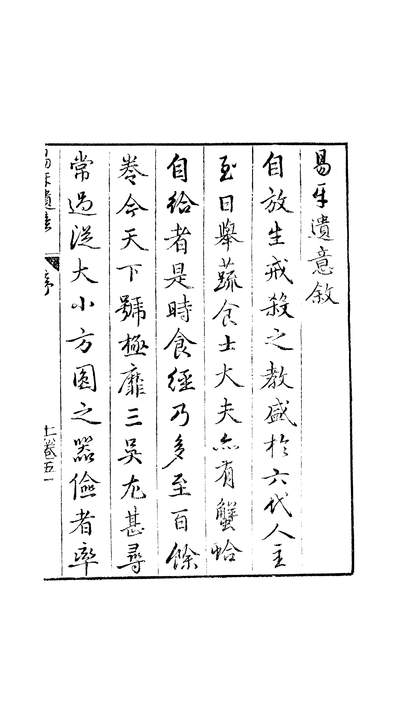 易牙遺意敘
自放生戒殺之教盛於六代人主
至日舉蔬食士大夫亦有蟹蛤
自給者是時食經乃多至百餘
卷今天下號極靡三吳尤甚尋
常過從大小方圓之器儉者率
易牙遺意
序